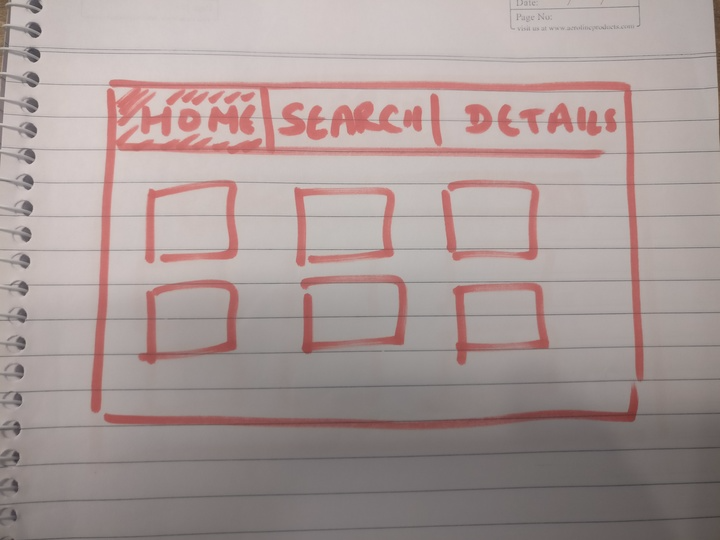 Date: / /
Page No:
visit us at www.aerolineproducts.com
HOME SEARCH DETAILS